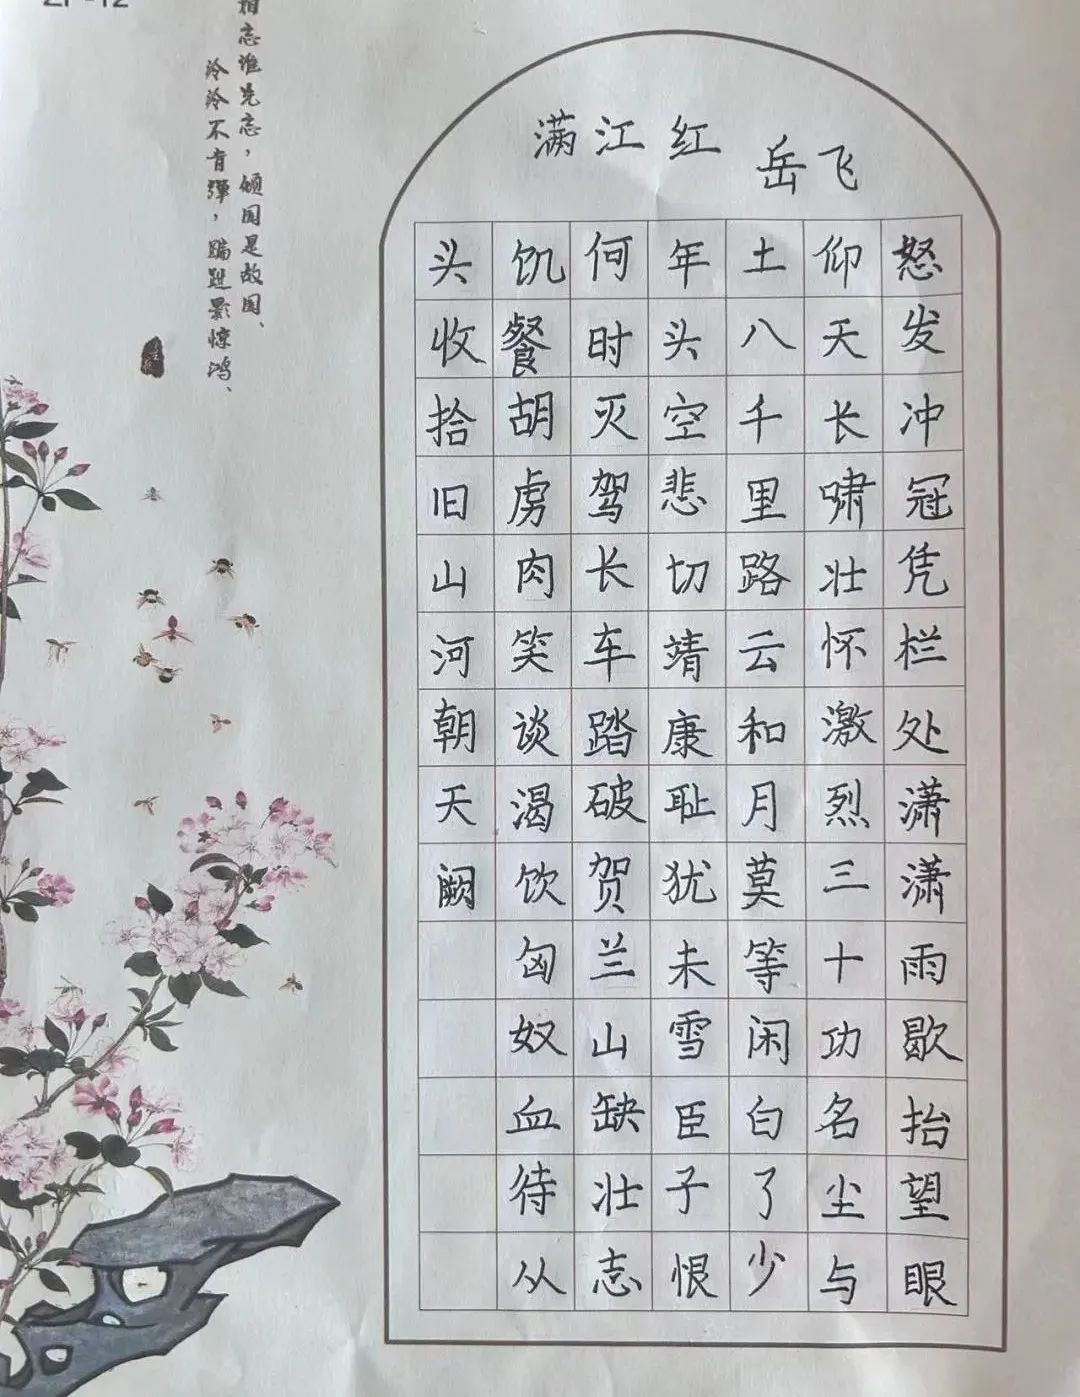 满江红
岳飞
怒发冲冠凭栏处潇潇雨歇抬望眼
仰天长啸壮怀激烈三十功名尘与
土八千里路云和月莫等闲白了少
年头空悲切靖康耻犹未雪臣子恨
何时灭驾长车踏破贺兰山缺壮志
饥餐胡虏肉笑谈渴饮匈奴血待从
头收拾旧山河朝天阙
相忘谁先忘，倾国是故国、
泠泠不肯弹，蹁跹影惊鸿、
ZP-12